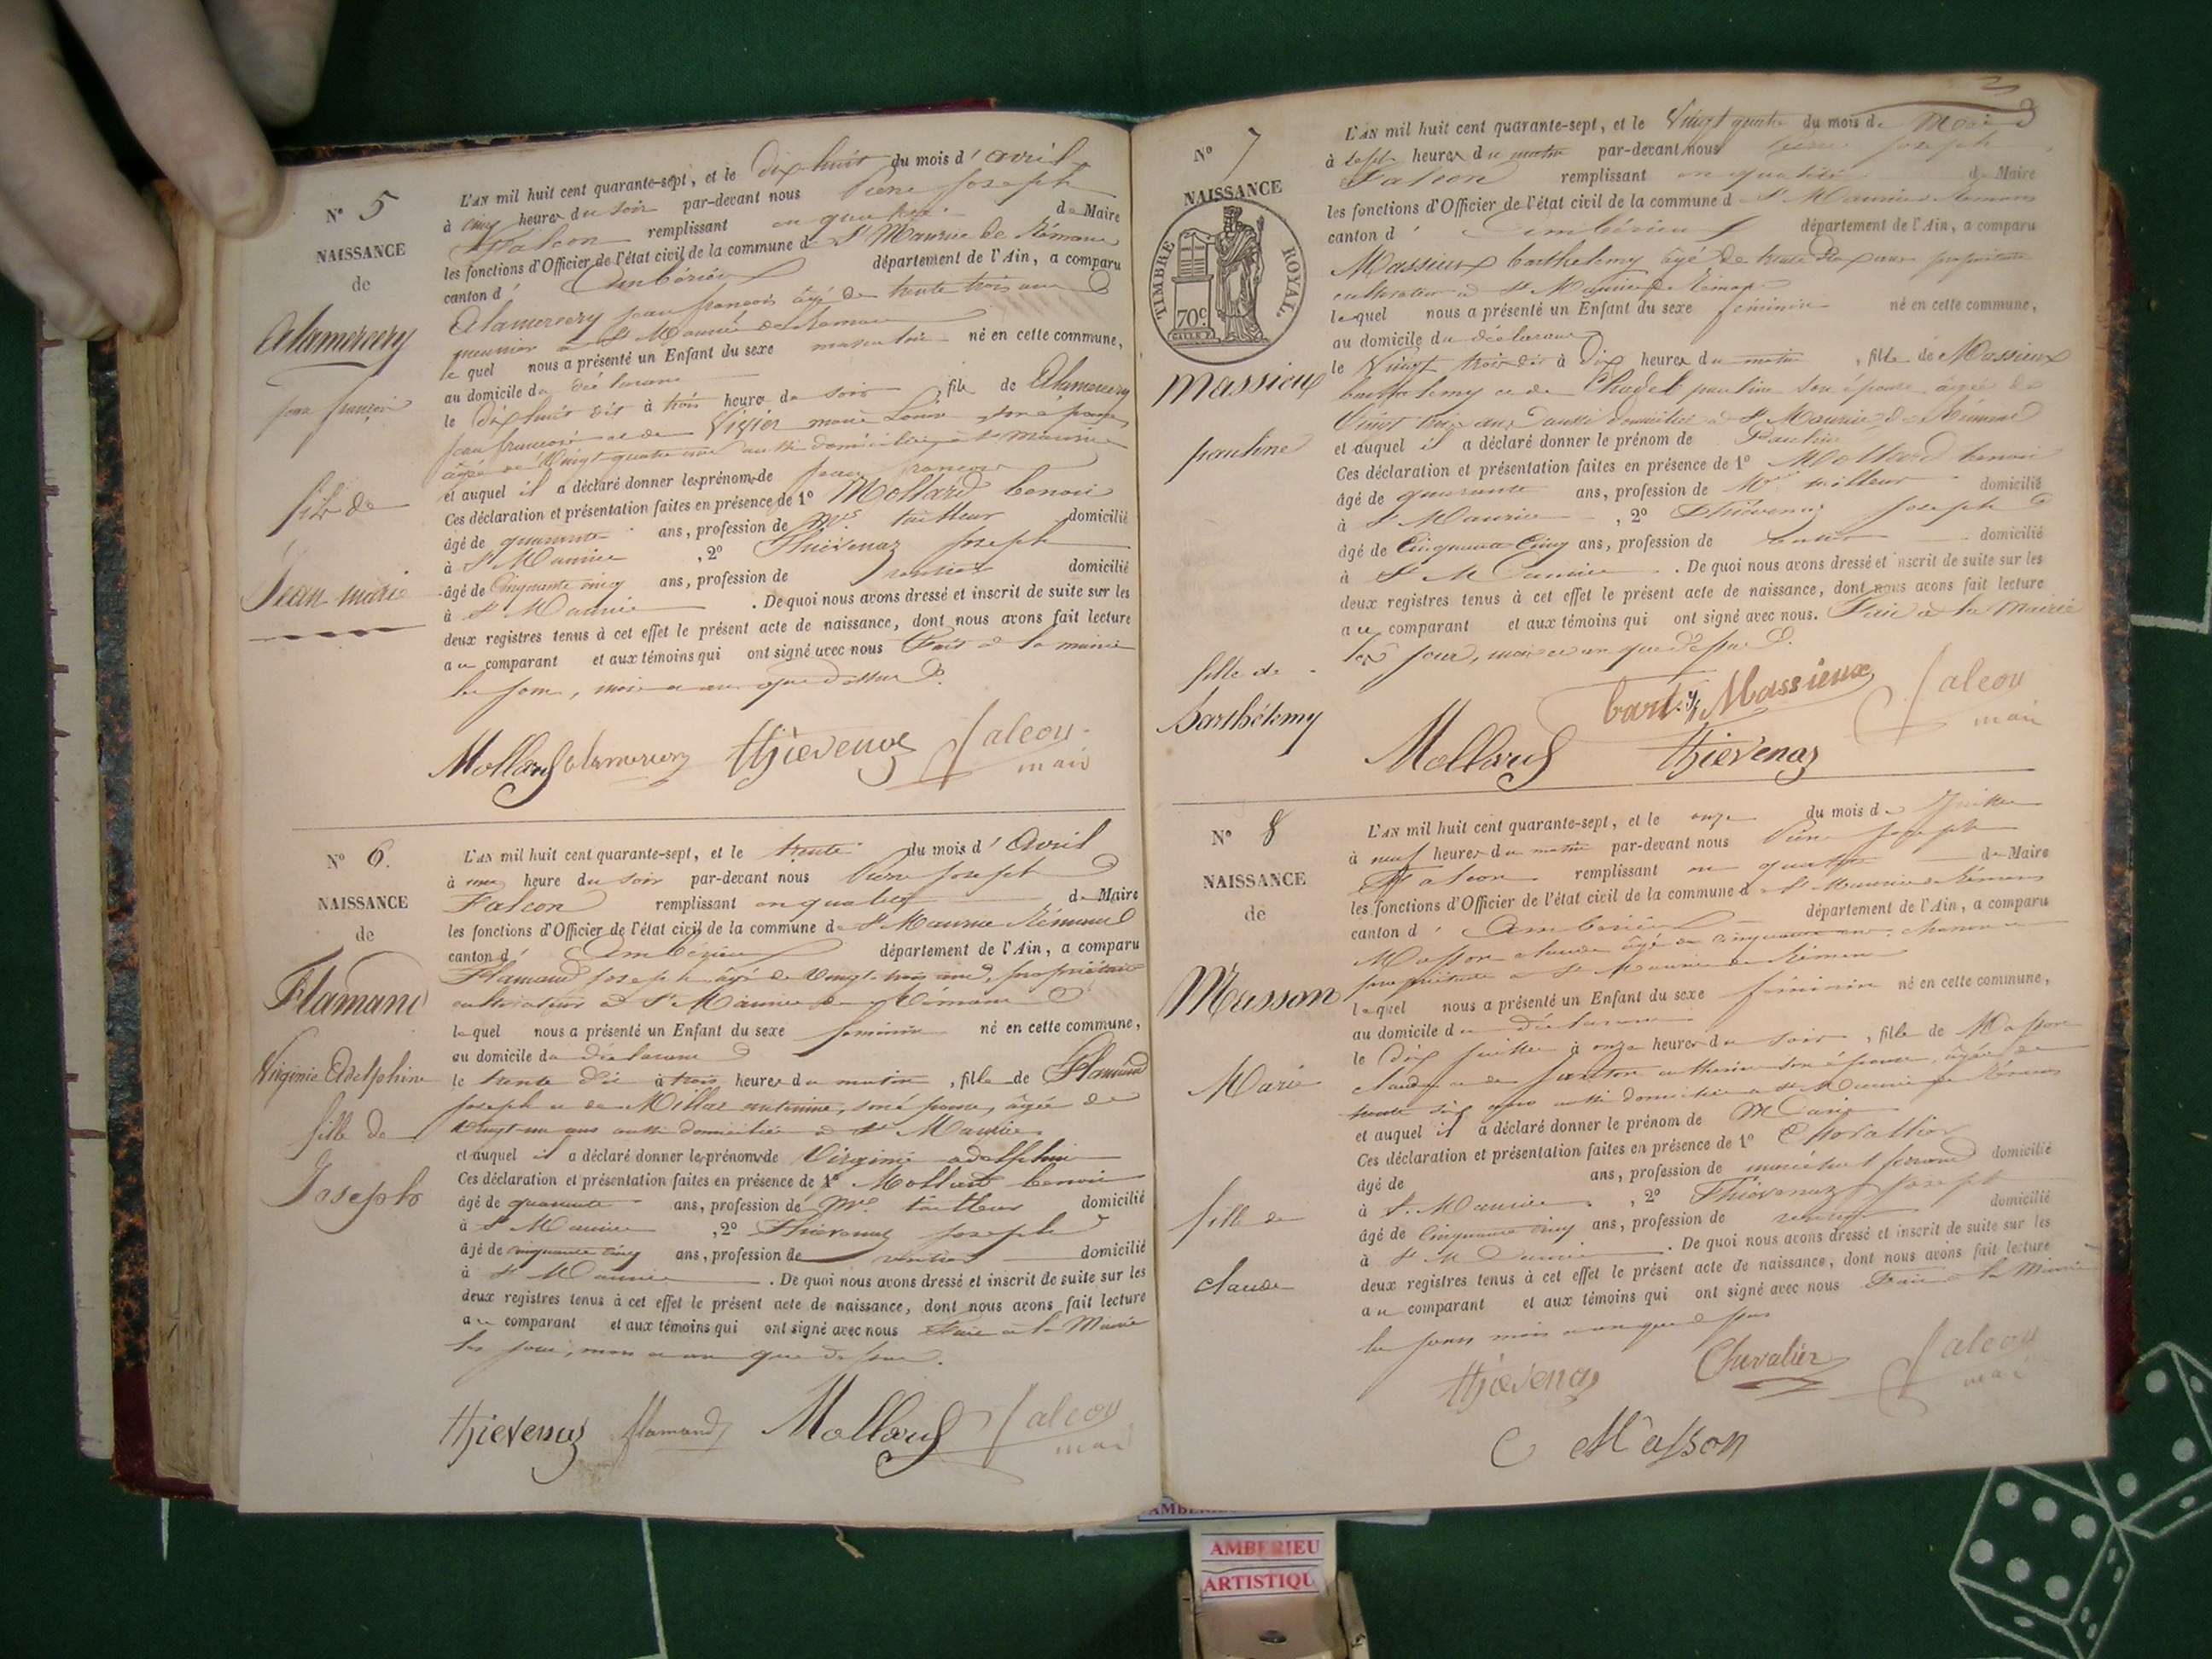 N° 5
NAISSANCE
de
Alamercery
jean françois
fils de
Jean marie
L'AN mil huit cent quarante-sept, et le dix huit du mois d'avril
à cinq heures du soir par-devant nous Pierre Joseph
Falcon remplissant en qualité de Maire
les fonctions d'Officier de l'état civil de la commune de St Maurice de Rémens
canton d' Ambérieu département de l'Ain, a comparu
Alamercery jean françois âgé de trente trois ans
à St Maurice de Rémens
le quel nous a présenté un Enfant du sexe masculin né en cette commune,
au domicile du déclarant
le dix huit dit à trois heures du soir, fils de Alamercery
jean françois et de marie son épouse
âgée de Vingt quatre ans aussi domiciliée à St Maurice
et auquel il a déclaré donner les prénoms de jean françois
Ces déclaration et présentation faites en présence de 1° Mollard benoit
âgé de quarante ans, profession de Md tailleur domicilié
à St Maurice, 2° Thievenaz joseph
âgé de Cinquante cinq ans, profession de rentier domicilié
à St Maurice. De quoi nous avons dressé et inscrit de suite sur les
deux registres tenus à cet effet le présent acte de naissance, dont nous avons fait lecture
au comparant et aux témoins qui ont signé avec nous Fait à la mairie
les jour, mois et an que dessus.
Mollard alamercery thievenaz falcon
maire
N° 6.
NAISSANCE
de
Flamand
Virginie Adelphine
fille de
Joseph
L'AN mil huit cent quarante-sept, et le trente du mois d'Avril
à une heure du soir par-devant nous Pierre Joseph
Falcon remplissant en qualité de Maire
les fonctions d'Officier de l'état civil de la commune de St Maurice Rémens
canton d' Ambérieu département de l'Ain, a comparu
Flamand joseph âgé de Vingt trois ans, propriétaire
cultivateur à St Maurice de Rémens
lequel nous a présenté un Enfant du sexe féminin né en cette commune,
au domicile du déclarant
le trente dit à trois heures du matin, fille de Flamand
joseph et de Millet antoinine, son épouse, âgée de
vingt un ans aussi domiciliée à St Maurice
et auquel il a déclaré donner les prénoms de Virginie adelphine
Ces déclaration et présentation faites en présence de 1° Mollard benoit
âgé de quarante ans, profession de Md tailleur domicilié
à St Maurice, 2° Thievenaz joseph
âgé de cinquante cinq ans, profession de rentier domicilié
à St Maurice. De quoi nous avons dressé et inscrit de suite sur les
deux registres tenus à cet effet le présent acte de naissance, dont nous avons fait lecture
au comparant et aux témoins qui ont signé avec nous Fait à la Mairie
les jour, mois et an que dessus.
thievenaz flamand Mollard falcon
maire
N° 7
NAISSANCE
TIMBRE ROYAL
70c
Massieux
pauline
fille de
barthélemy
L'AN mil huit cent quarante-sept, et le Vingt quatre du mois de Mai
à sept heures du matin par-devant nous Pierre Joseph
Falcon remplissant en qualité de Maire
les fonctions d'Officier de l'état civil de la commune de St Maurice de Rémens
canton d' Ambérieu département de l'Ain, a comparu
Massieux barthelemy âgé de trente ans propriétaire
cultivateur à St Maurice de Rémens
lequel nous a présenté un Enfant du sexe féminin né en cette commune,
au domicile du déclarant
le Vingt trois dit à dix heures du matin, fille de Massieux
barthelemy et de Chadel pauline son épouse âgée de
Vingt ans aussi domiciliée à St Maurice de Rémens
et auquel il a déclaré donner le prénom de Pauline
Ces déclaration et présentation faites en présence de 1° Mollard benoit
âgé de quarante ans, profession de Md tailleur domicilié
à St Maurice, 2° Thievenaz joseph
âgé de Cinquante Cinq ans, profession de domicilié
à St Maurice. De quoi nous avons dressé et inscrit de suite sur les
deux registres tenus à cet effet le présent acte de naissance, dont nous avons fait lecture
au comparant et aux témoins qui ont signé avec nous. Fait à la Mairie
les jour, mois et an que dessus.
bart.y Massieux falcon
maire
Mollard thievenaz
N° 8
NAISSANCE
de
Masson
Marie
fille de
claude
L'AN mil huit cent quarante-sept, et le onze du mois de Juillet
à neuf heures du matin par-devant nous Pierre Joseph
Falcon remplissant en qualité de Maire
les fonctions d'Officier de l'état civil de la commune de St Maurice de Rémens
canton d' Ambérieu département de l'Ain, a comparu
Masson claude âgé de cinquante ans
propriétaire à St Maurice de Rémens
lequel nous a présenté un Enfant du sexe féminin né en cette commune,
au domicile du déclarant
le dix juillet à onze heures du soir, fille de Masson
claude et de catherine son épouse, âgée de
trente six ans aussi domiciliée à St Maurice de Rémens
et auquel il a déclaré donner le prénom de Marie
Ces déclaration et présentation faites en présence de 1° Chevallier
âgé de ans, profession de maréchal ferrand domicilié
à St. Maurice, 2° Thievenaz joseph
âgé de Cinquante cinq ans, profession de rentier domicilié
à St Maurice. De quoi nous avons dressé et inscrit de suite sur les
deux registres tenus à cet effet le présent acte de naissance, dont nous avons fait lecture
au comparant et aux témoins qui ont signé avec nous Fait à la Mairie
les jour mois et an que dessus
thievenaz Chevalier falcon
maire
C Masson
AMBERIEU
ARTISTIQU